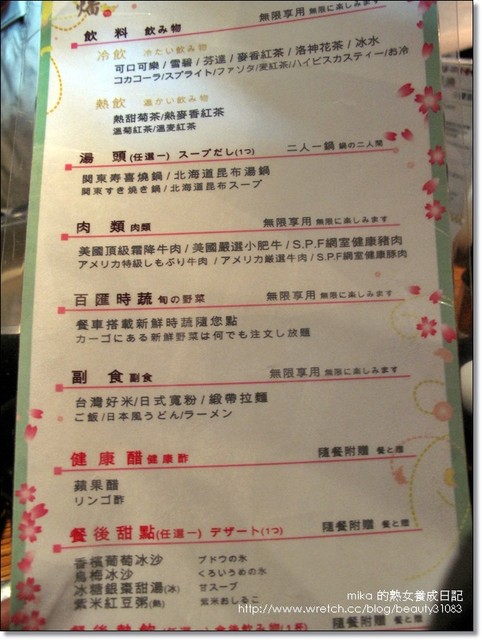 無限享用 無限に楽しみます
飲料 飲み物
冷飲 冷たい飲み物
可口可樂 / 雪碧 / 芬達 / 麥香紅茶 / 洛神花茶 / 冰水
コカコーラ/スプライト/ファンタ/麦紅茶/ハイビスカスティー/お冷
熱飲 温かい飲み物
熱甜菊茶/熱麥香紅茶
温菊紅茶/温麦紅茶
湯頭(任選一) スープだし(1つ) 二人一鍋 鍋の二人間
関東寿喜燒鍋/北海道昆布湯鍋
関東すき焼き鍋/北海道昆布スープ
肉類 肉類 無限享用 無限に楽しみます
美國頂級霜降牛肉/美國嚴選小肥牛/S.P.F網室健康豬肉
アメリカ特級しもぶり牛肉 / アメリカ厳選牛肉/S.P.F網室健康豚肉
百匯時蔬 旬の野菜 無限享用 無限に楽しみます
餐車搭載新鮮時蔬隨您點
カーゴにある新鮮野菜は何でも注文し放題
副食 副食 無限享用 無限に楽しみます
台灣好米/日式寬粉/緞帶拉麵
ご飯/日本風うどん/ラーメン
健康醋 健康酢 隨餐附贈 餐と贈
蘋果醋
リンゴ酢
餐後甜點(任選一) デザート(1つ) 隨餐附贈 餐と贈
香檳葡萄冰沙 ブドウの氷
烏梅冰沙 くろいうめの氷
冰糖銀棗甜湯(冰) 甘スープ
紫米紅豆粥(熱) 紫米おしるこ
mika 的熟女養成日記
http://www.wretch.cc/blog/beauty31083